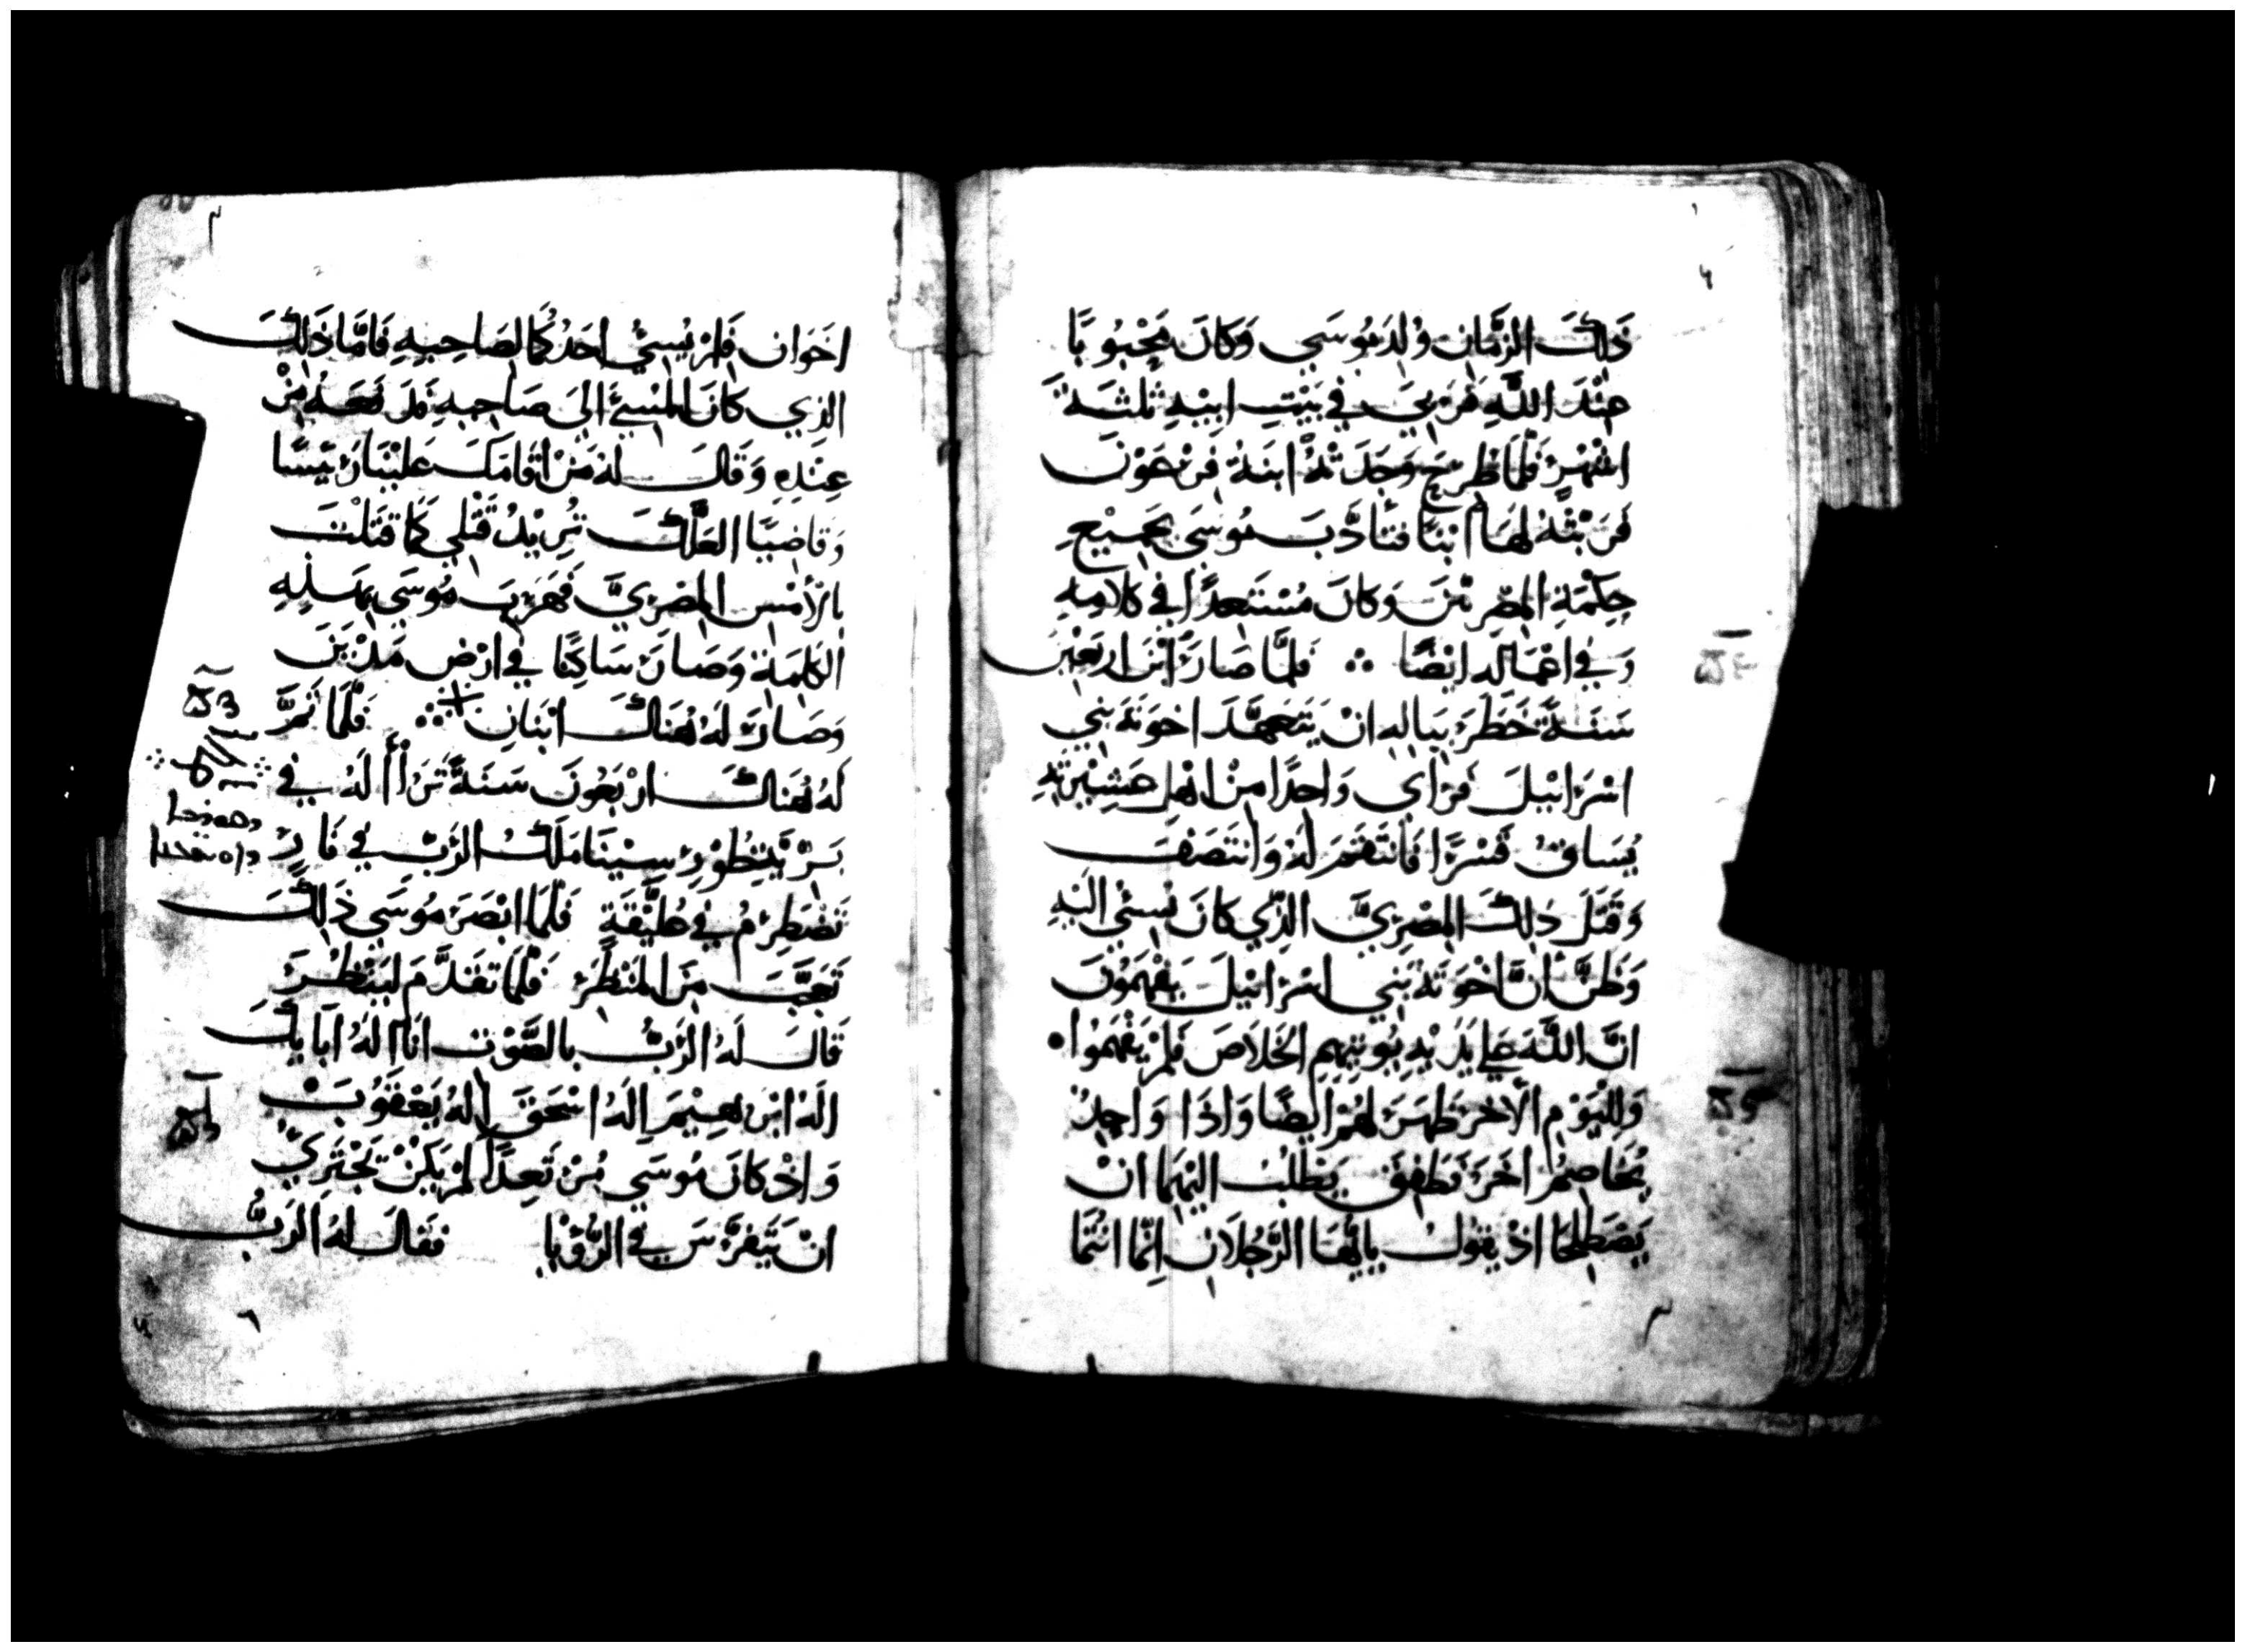 ذَلِكَ الزَّمَانِ وُلِدَ مُوسَي وَكَانَ مَحْبُوبًا
عِنْدَ اللَّهِ فَرُبِيَ فِي بَيْتِ ابِيْهِ ثلثَةَ
اشْهُرٍ فَلَمَّا طُرِحَ وَجَدَتْهُ ابنَةُ فِرْعَوْنَ
فَرَبَّتْهُ لهَا ابْنًا فتَأَدَّبَ مُوسَي بِجَمِيْعِ
حِكْمَةِ المِصْرِيّنَ وَكَانَ مُسْتَعِدًا في كَلامِهِ
وَفِي اعْمَالِهِ ايْضًا ∴ فَلمَّا صَارَ ابْنَ ارْبَعِيْنَ
سَنَةً خَطَرَ بِبَالِهِ انْ يَتَعَهَّدَ اخوَتَهُ بَنِي
اسْرَائيْلَ فَرَاي وَاحِدًا مِنْ اهْلِ عَشِيْرَتِهِ
يُسَاقُ قَسْرًا فَانْتَقَمَ لَهُ وَانْتَصَفَ
وَقَتَلَ ذلِكَ المِصْرِيَّ الَّذِي كَانَ يُسِيُ الَيْهِ
وَظَنَّ أنَّ اخْوَتَهُ بَنِي اسْرَائيلَ يَفْهَمُونَ
انَّ اللَّهَ عَلي يَدَيْهِ يُوتِيْهِمِ الخَلَاصَ فَلَمْ يَفْهَمُوا •
وَللْيَوْمِ الْأَخَرِ ظَهَرَ لَهُمْ ايْضًا وَاذَا وَاحِدٌ
يُخَاصِمُ اخَرَ فَطَفِقَ يَطْلُبُ الَيْهِمَا انْ
يَصْطَلِحَا اذْ يَقُولُ يا أَيُّهَا الرَّجُلَانِ انَّمَا انْتُمَا
اخَوَانِ فَلِمْ يُسِيُ احَدُكُمَا لِصَاحِبِهِ فَامَّا ذَلِكَ
الَّذِي كَانَ المُسْئَ الَيَ صَاحِبِهِ فَدَفَعَهُ مِنْ
عِنْدِهِ وَقَالَ لَهُ مَنْ اقَامَكَ عَلَيْنَا رَيِّسًا
وَقَاضِيًا العَلَّكَ تُرِيْدُ قَتْلِي كَمَا قَتَلْتَ
بالأَمْسِ المِصْرِيَّ فَهَرَبَ مُوسَي بِهَذِهِ
الكَلِمَةِ وَصَارَ سَاكِنًا في ارْضِ مَدْيَنَ
وَصَارَ لَهُ هُنَاكَ ابْنَانِ ∴ فَلَمَّا تَمَّ
لَهُ هُنَاكَ ارْبَعُونَ سَنَةً تَرَأأ لَهُ في
بَرِّيَّةِ طُوْرِ سِيْنَا مَلَكُ الرَّبِّ فِي نَارٍ
تَضْطَرِمُ فِي عُلَّيْقَةٍ فَلَمَّا ابْصَرَ مُوسَي ذَلِكَ
تَعَجَّبَ مِنَ المَنْظَرِ فَلَمَّا تَقَدَّمَ ليَنْظُرَ
قَالَ لَهُ الرَّبُّ بالصَّوْتِ انَا الَهُ ابَائِكَ
الَهُ ابْرَهِيْمَ الَهُ اسْحَقَ الَهُ يَعْقُوبَ •
وَاذْ كَانَ مُوسَي مُرْتَعِدًا لَمْ يَكُنْ يَجْتَرِيُ
انْ يَتَفَرَّسَ فِي الرُّؤْيَا فَقَالَ لَهُ الرَّبُّ